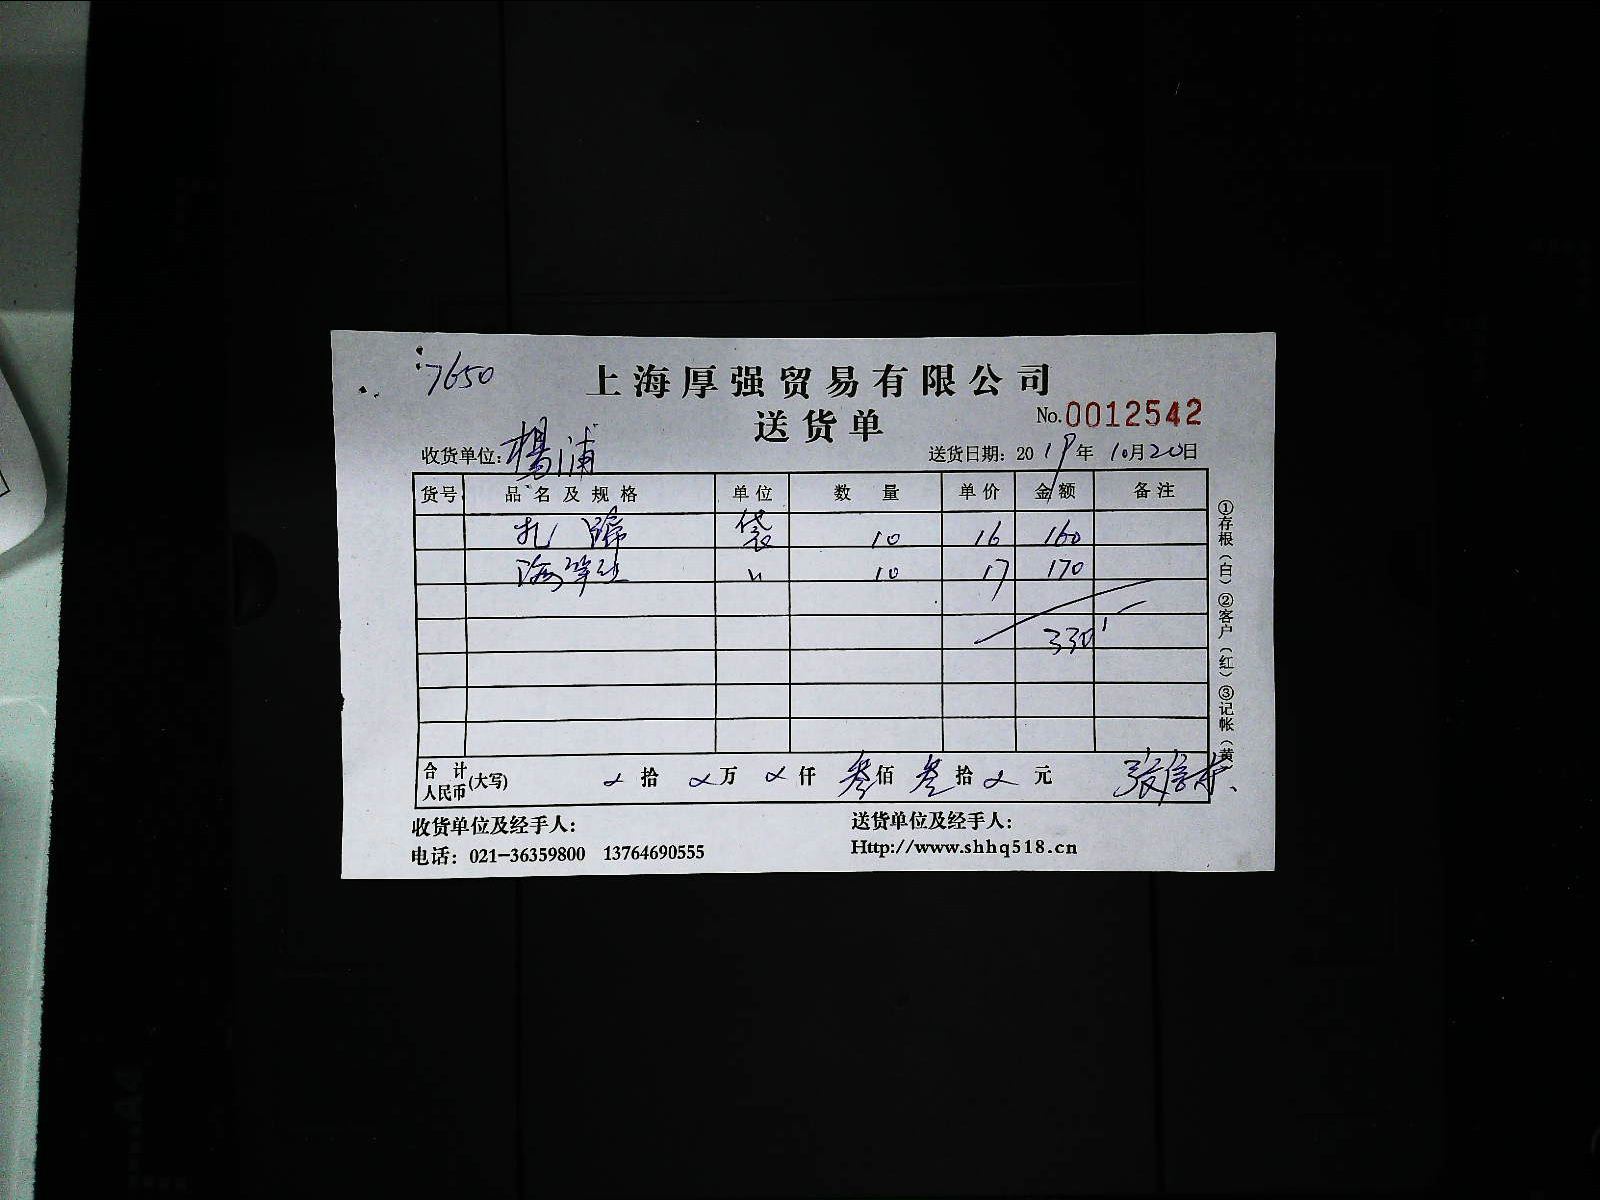 7650
上海厚强贸易有限公司
送货单
No.0012542
收货单位：楊浦
送货日期：2019年10月20日
货号 品名及规格 单位 数量 单价 金额 备注
扎蹄 袋 10 16 160
海笋丝 〃 10 17 170
330
合计人民币(大写) 拾 万 仟 叁佰 叁拾 元
收货单位及经手人：
送货单位及经手人：
电话：021-36359800 13764690555
Http://www.shhq518.cn
①存根（白）②客户（红）③记帐（黄